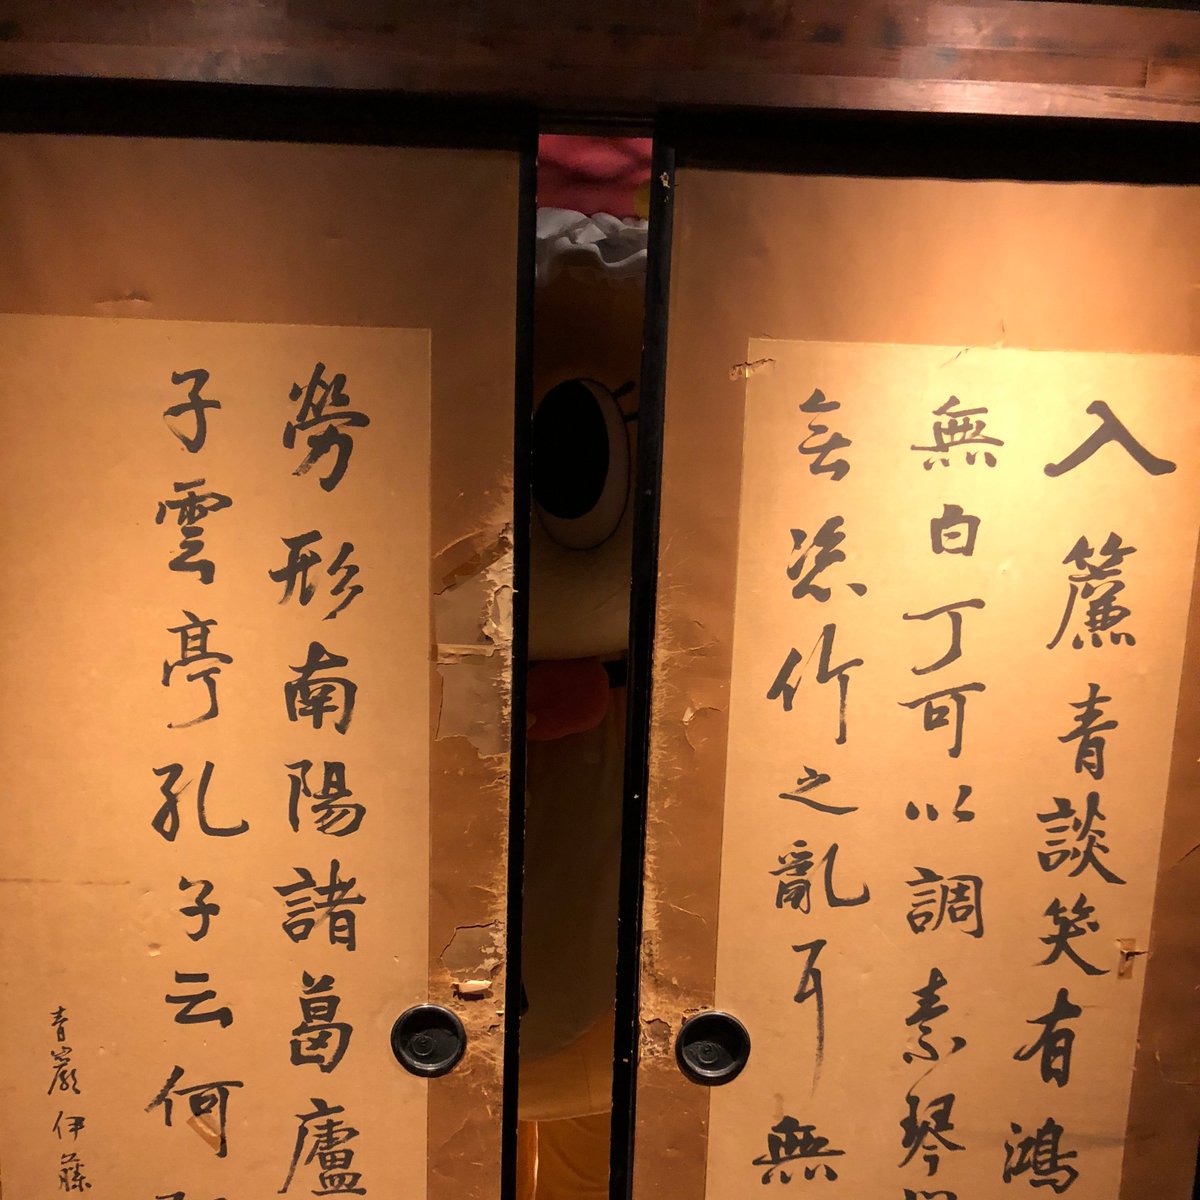 入簾青談笑有鴻
無白丁可以調素琴
無絲竹之亂耳無
勞形南陽諸葛廬
子雲亭孔子云何
青巖伊藤